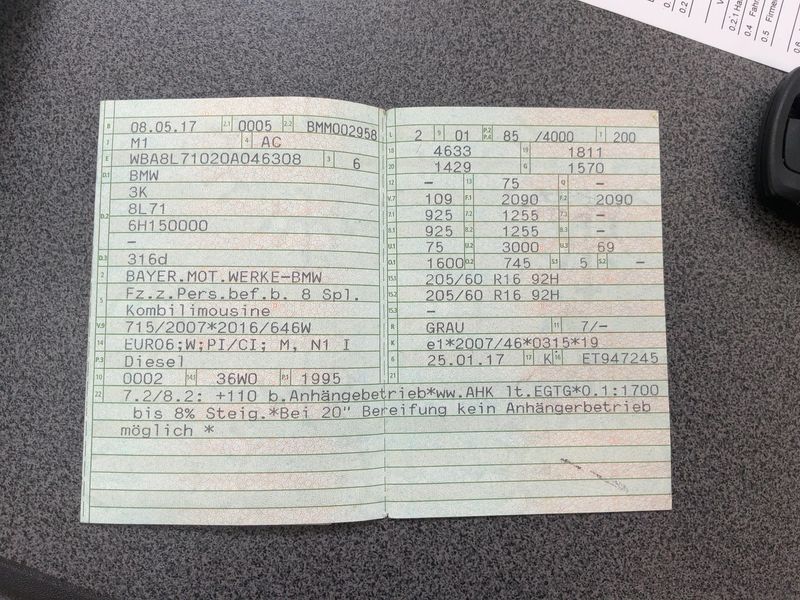 B 08.05.17 2.1 0005 2.2 BMM002958
J M1 4 AC
E WBA8L71020A046308 3 6
D.1 BMW
3K
D.2 8L71
6H150000
–
D.3 316d
2 BAYER.MOT.WERKE–BMW
5 Fz.z.Pers.bef.b. 8 Spl.
Kombilimousine
V.9 715/2007*2016/646W
14 EURO6;W;PI/CI; M, N1 I
P.3 Diesel
10 0002 14.1 36W0 P.1 1995
L 2 9 01 P.2 P.4 85 /4000 T 200
18 4633 19 1811
20 1429 G 1570
12 – 13 75 Q –
V.7 109 F.1 2090 F.2 2090
7.1 925 7.2 1255 7.3 –
8.1 925 8.2 1255 8.3 –
U.1 75 U.2 3000 U.3 69
O.1 1600 O.2 745 S.1 5 S.2 –
15.1 205/60 R16 92H
15.2 205/60 R16 92H
15.3 –
R GRAU 11 7/–
K e1*2007/46*0315*19
6 25.01.17 17 K 16 ET947245
21
22 7.2/8.2: +110 b.Anhängebetrieb*ww.AHK lt.EGTG*0.1:1700
bis 8% Steig.*Bei 20" Bereifung kein Anhängerbetrieb
möglich *
0.2
0.2.1
0.4
0.5 Firme